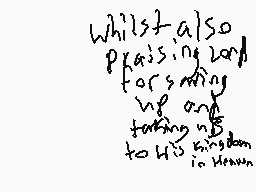 whilst also
praising lord
for saving
up and
taking us
to His kingdom
in Heaven